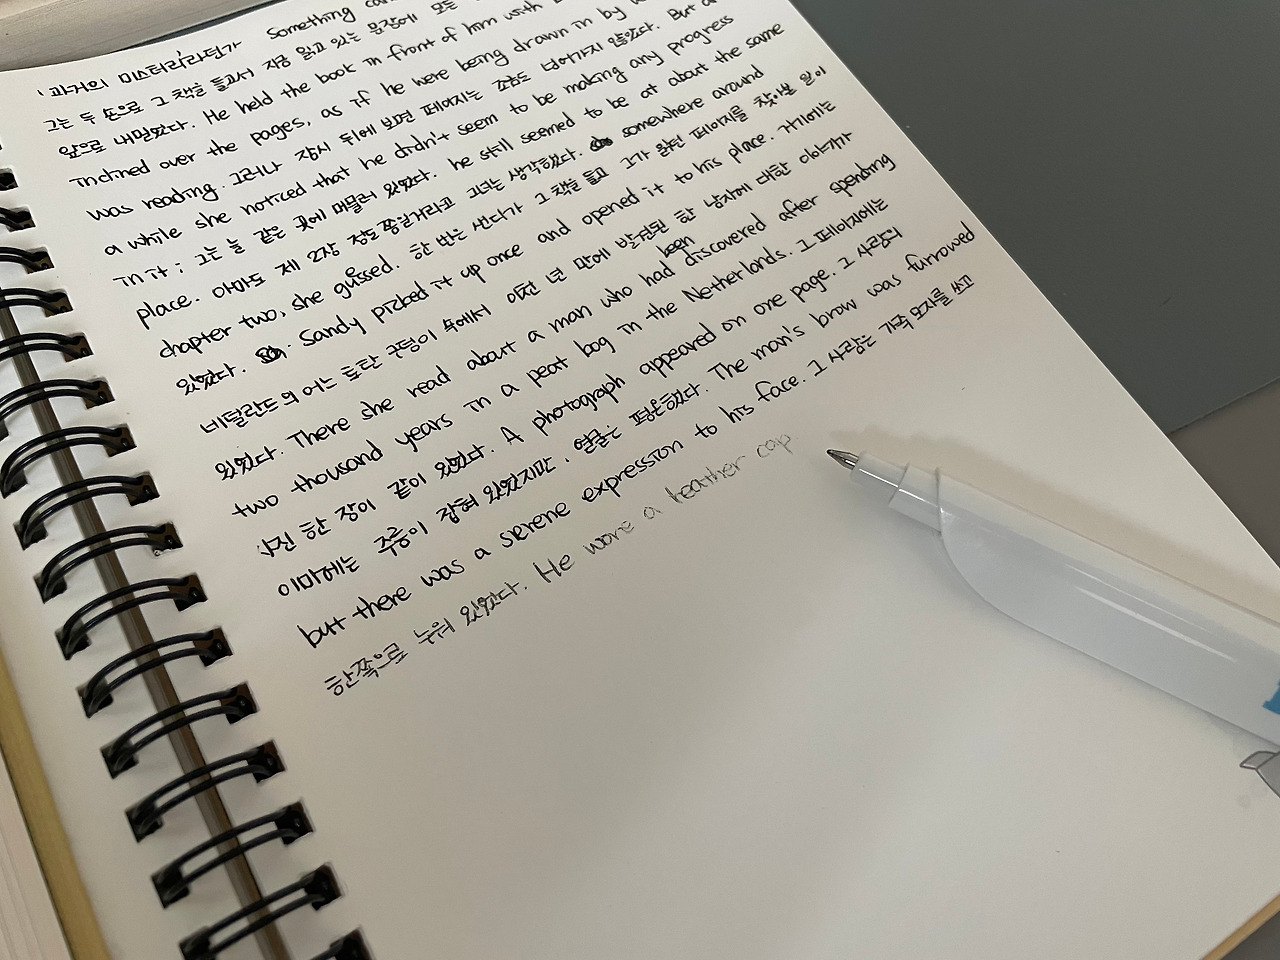 ' 과거의 미스터리라던가 Something
그는 두 손으로 그 책을 들고서 지금 읽고 있는 문장에 모든
앞으로 내밀었다. He held the book in front of him with
inclined over the pages, as if he were being drawn in by
was reading. 그러나 잠시 뒤에 보면 페이지는 조금도 넘어가지 않았다. But a
a while she noticed that he didn't seem to be making any progress
in it ; 그는 늘 같은 곳에 머물러 있었다. he still seemed to be at about the same
place. 아마도 제 2장 정도쯤일거라고 그녀는 생각했다. somewhere around
chapter two, she guessed. 한 번은 샌디가 그 책을 들고 그가 읽던 페이지를 찾아낸 일이
있었다. Sandy picked it up once and opened it to his place. 거기에는
네덜란드의 어느 토탄 구덩이 속에서 이천 년 만에 발견된 한 남자에 대한 이야기가
있었다. There she read about a man who had been discovered after spending
two thousand years in a peat bog in the Netherlands. 그 페이지에는
사진 한 장이 같이 있었다. A photograph appeared on one page. 그 사람의
이마에는 주름이 잡혀 있었지만, 얼굴은 평온했다. The man's brow was furrowed
but there was a serene expression to his face. 그 사람은 가죽 모자를 쓰고
한쪽으로 누워 있었다. He wore a leather cap